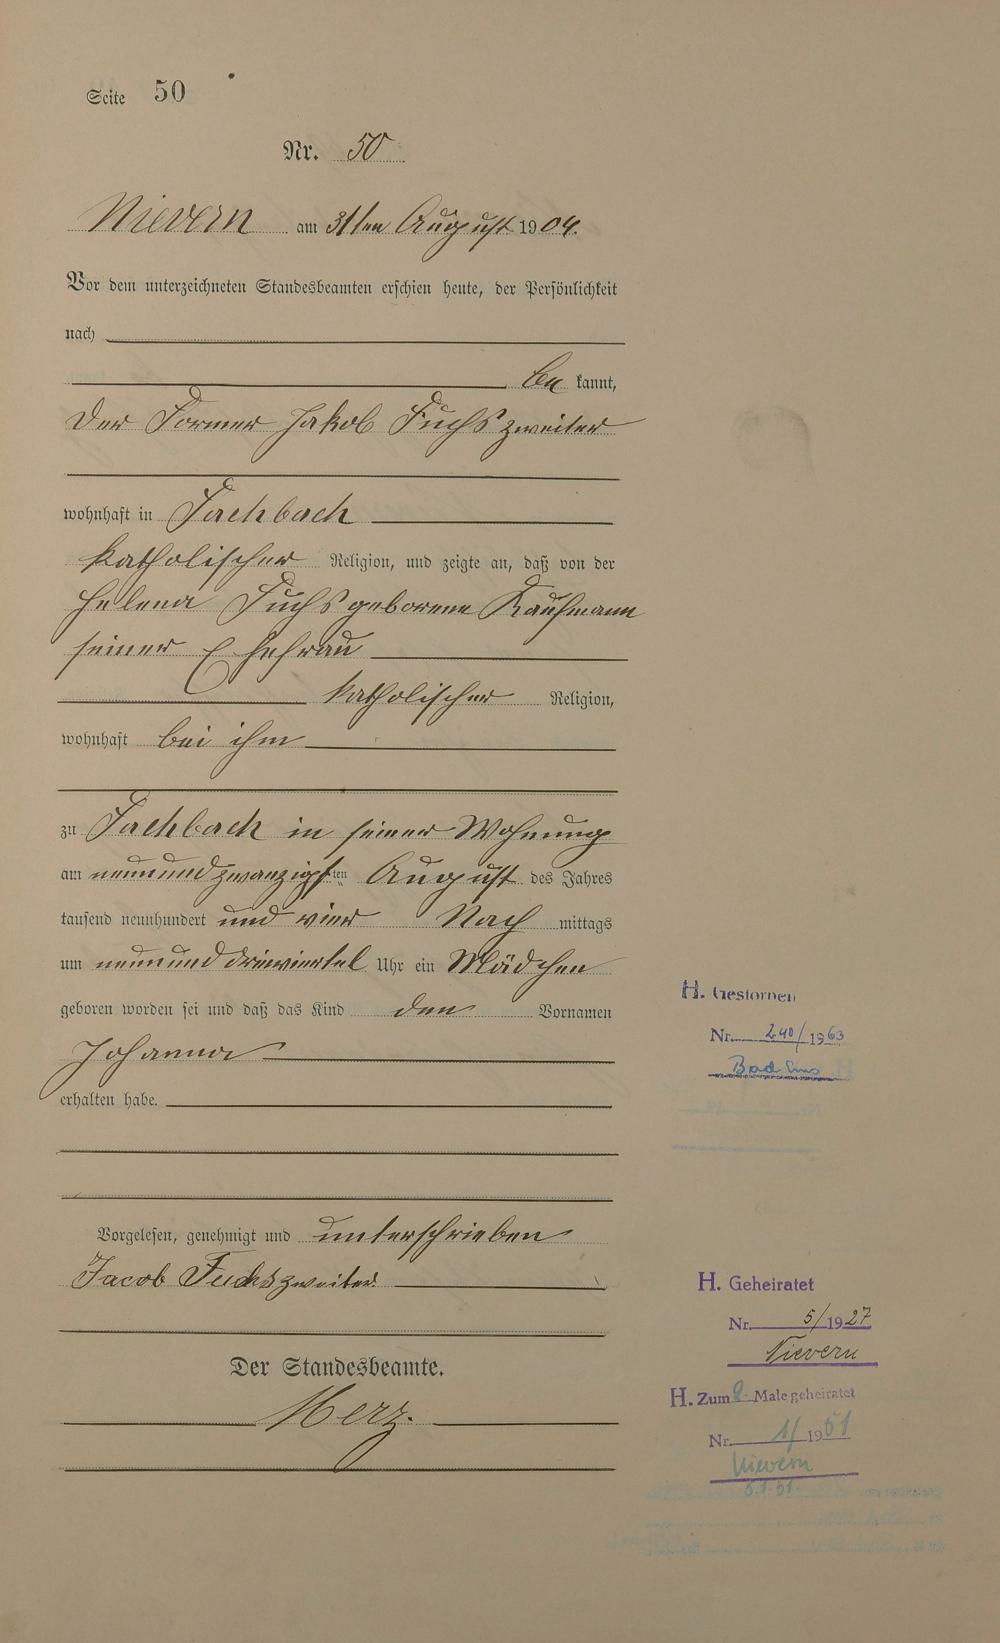 Seite 50
Nr. 50
Nievern am 31ten August 1904.
Vor dem unterzeichneten Standesbeamten erschien heute, der Persönlichkeit
nach
be kannt,
der Former Jakob Fuchs zweiter
wohnhaft in Fachbach
katholischer Religion, und zeigte an, daß von der
Helena Fuchs geborene Kaufmann
seiner Ehefrau
katholischer Religion,
wohnhaft bei ihm
zu Fachbach in seiner Wohnung
am neunundzwanzigsten August des Jahres
tausend neunhundert und vier Nach mittags
um neununddreiviertel Uhr ein Mädchen
geboren worden sei und daß das Kind den Vornamen
Johanna
erhalten habe.
Vorgelesen, genehmigt und unterschrieben
Jacob Fuchs zweiter
Der Standesbeamte.
Merz.
H. Gestorben
Nr. 240/1963
Bad Ems
H. Geheiratet
Nr. 5/1927
Nievern
H. Zum 2. Male geheiratet
Nr. 1/1951
Nievern
5.1.51.